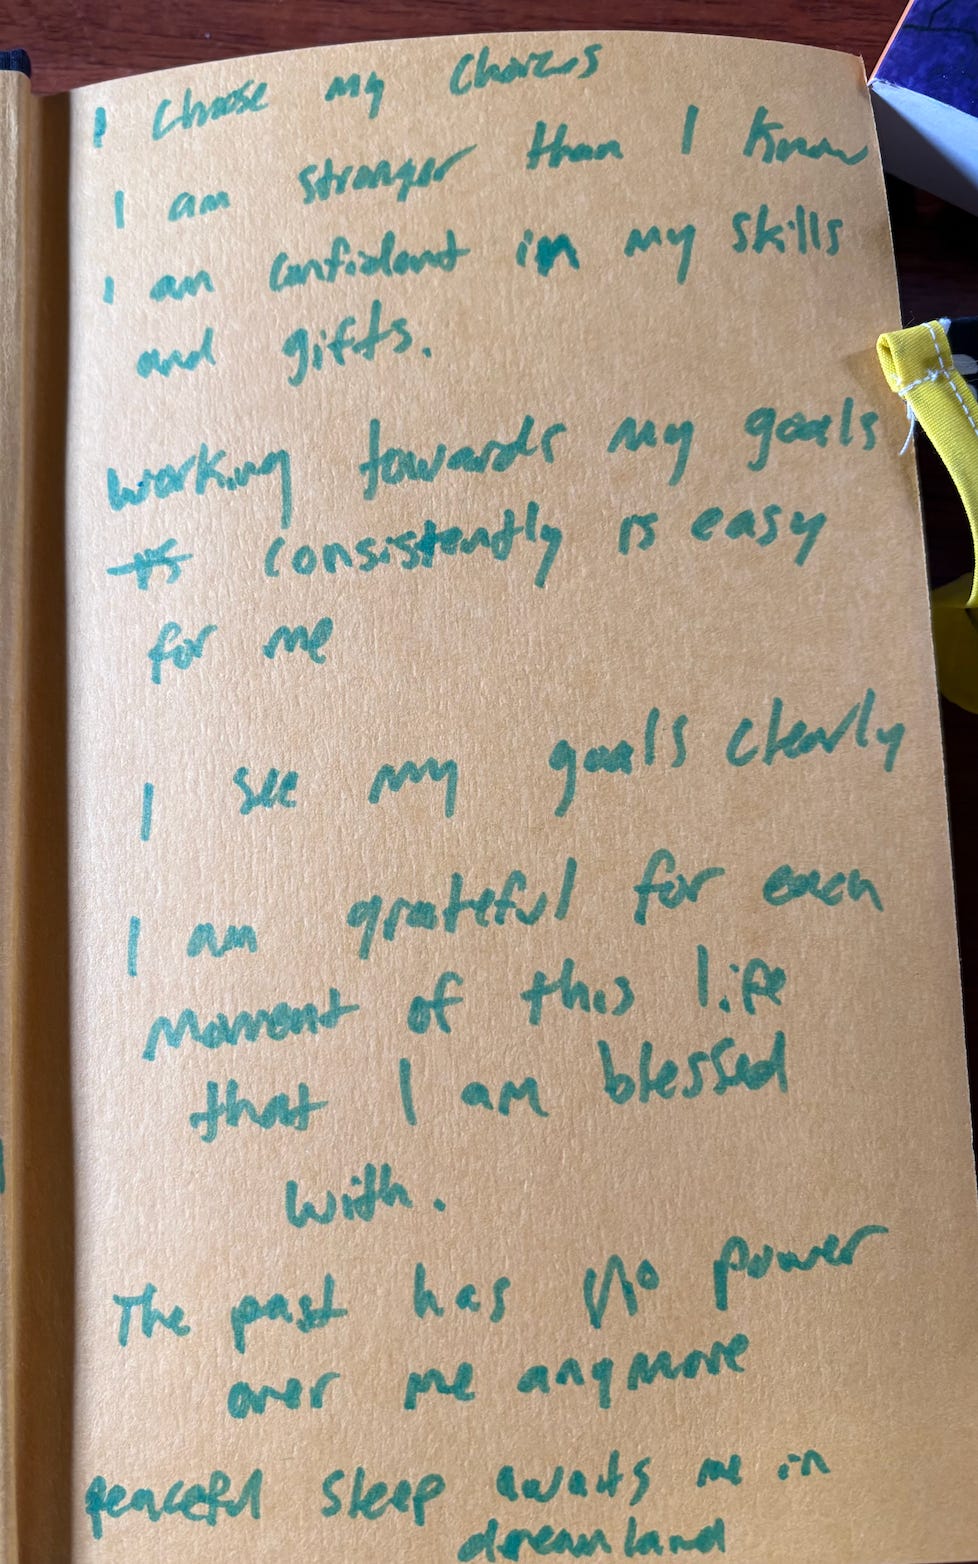 I choose my choices
I am stronger than I know
I am confident in my skills
and gifts.
working towards my goals
is consistently is easy
for me
I see my goals clearly
I am grateful for each
moment of this life
that I am blessed
with.
The past has no power
over me anymore
peaceful sleep awaits me in
dreamland